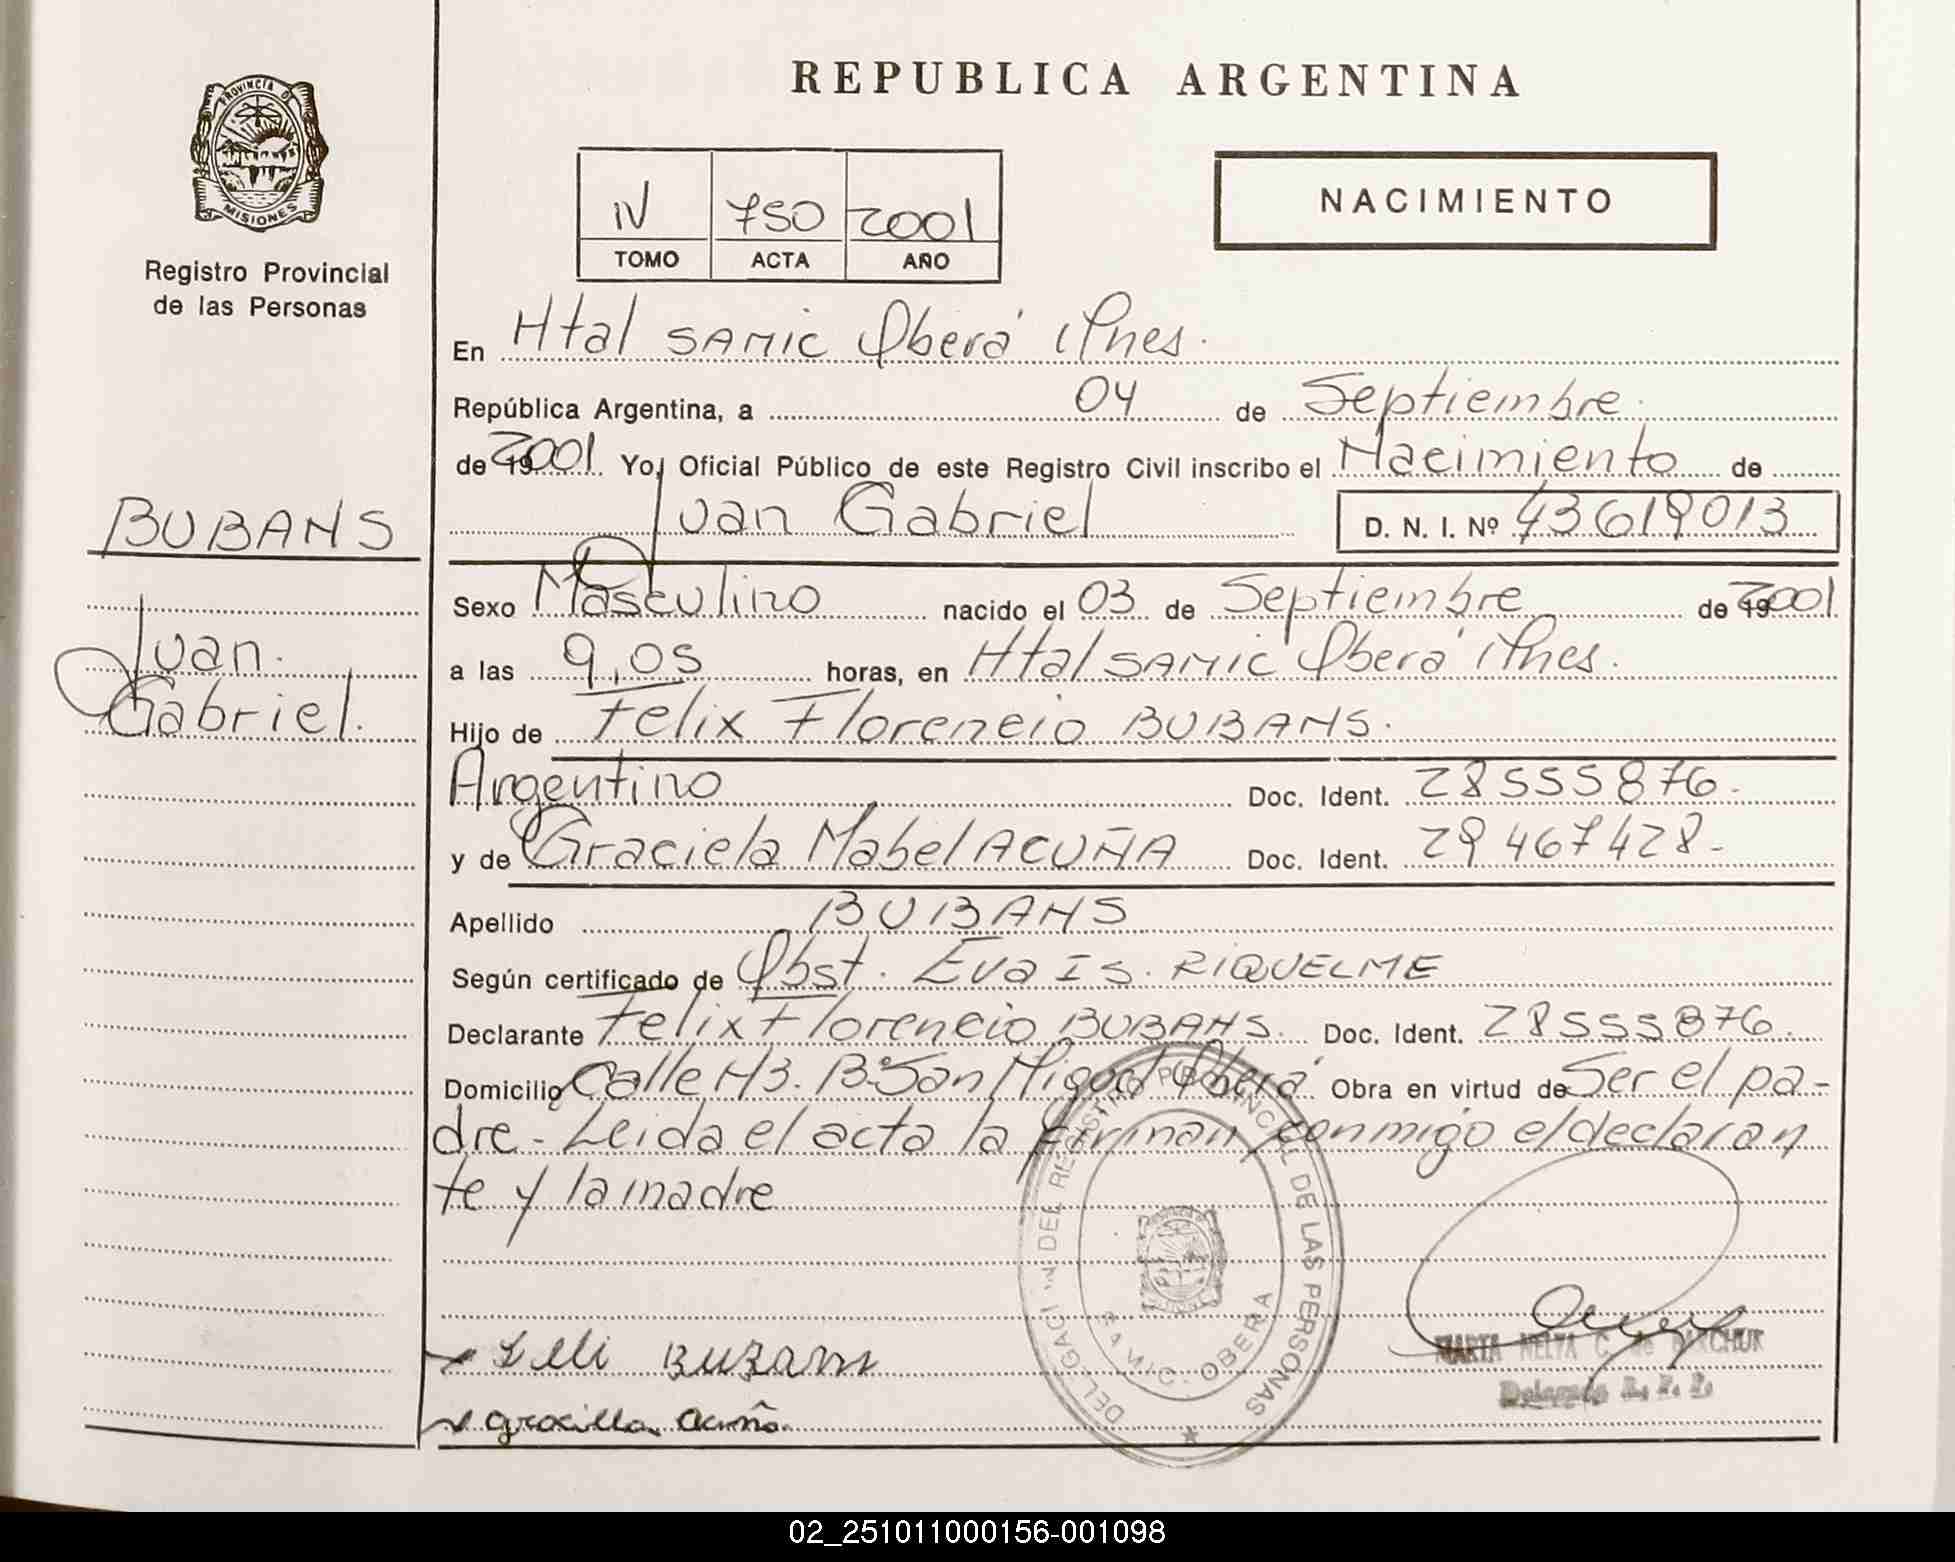 REPUBLICA ARGENTINA
PROVINCIA DE
MISIONES
Registro Provincial
de las Personas
IV 750 2001
TOMO ACTA AÑO
NACIMIENTO
En Htal SAMIC Oberá Mnes.
República Argentina, a 04 de Septiembre.
de 2001 Yo, Oficial Público de este Registro Civil inscribo el Nacimiento de
Juan Gabriel D. N. I. Nº 43619013
BUBANS
Juan
Gabriel.
Sexo Masculino nacido el 03 de Septiembre de 2001
a las 9,05 horas, en Htal SAMIC Oberá Mnes.
Hijo de Felix Florencio BUBANS.
Argentino Doc. Ident. 28555876.
y de Graciela Mabel ACUÑA Doc. Ident. 29467428-
Apellido BUBANS
Según certificado de Obst. Eva Is. RIQUELME
Declarante Felix Florencio BUBANS. Doc. Ident. 28555876.
Domicilio Calle N3. Bº San Miguel Oberá Obra en virtud de Ser el pa-
dre - Leida el acta la firman conmigo el declaran
te y la madre
DEL REGISTRO PROVINCIAL DE LAS PERSONAS
OBERA
MARTA NELYA C. de
Delegada R. P. P.
BUBANS
graciela acuña
02_251011000156-001098